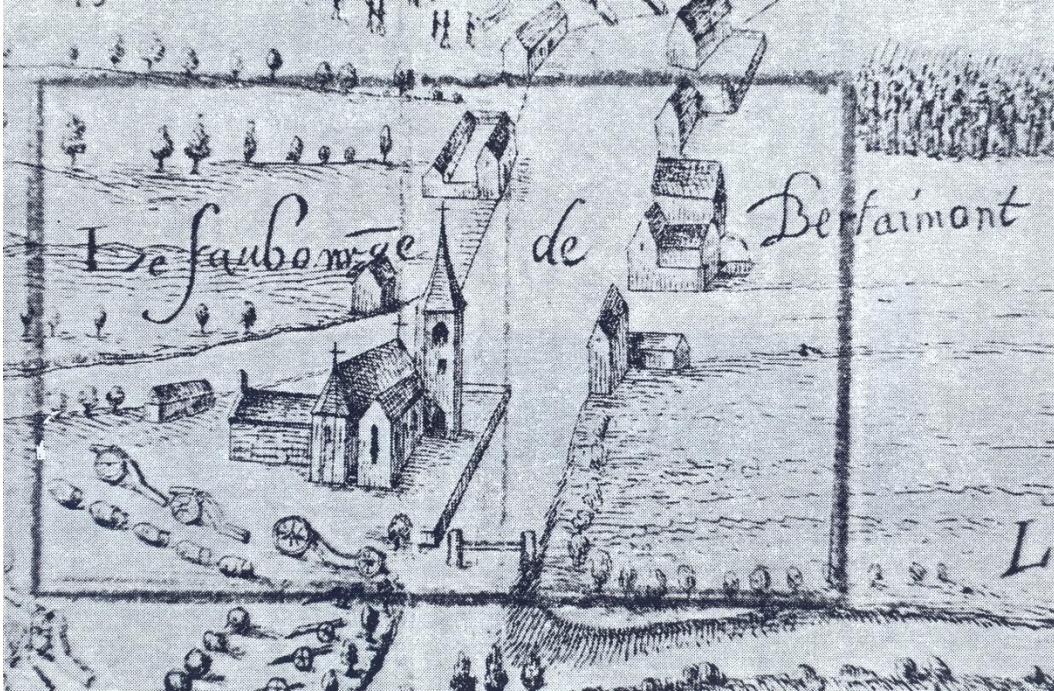 Le faubourg̅e de Bertaimont
L